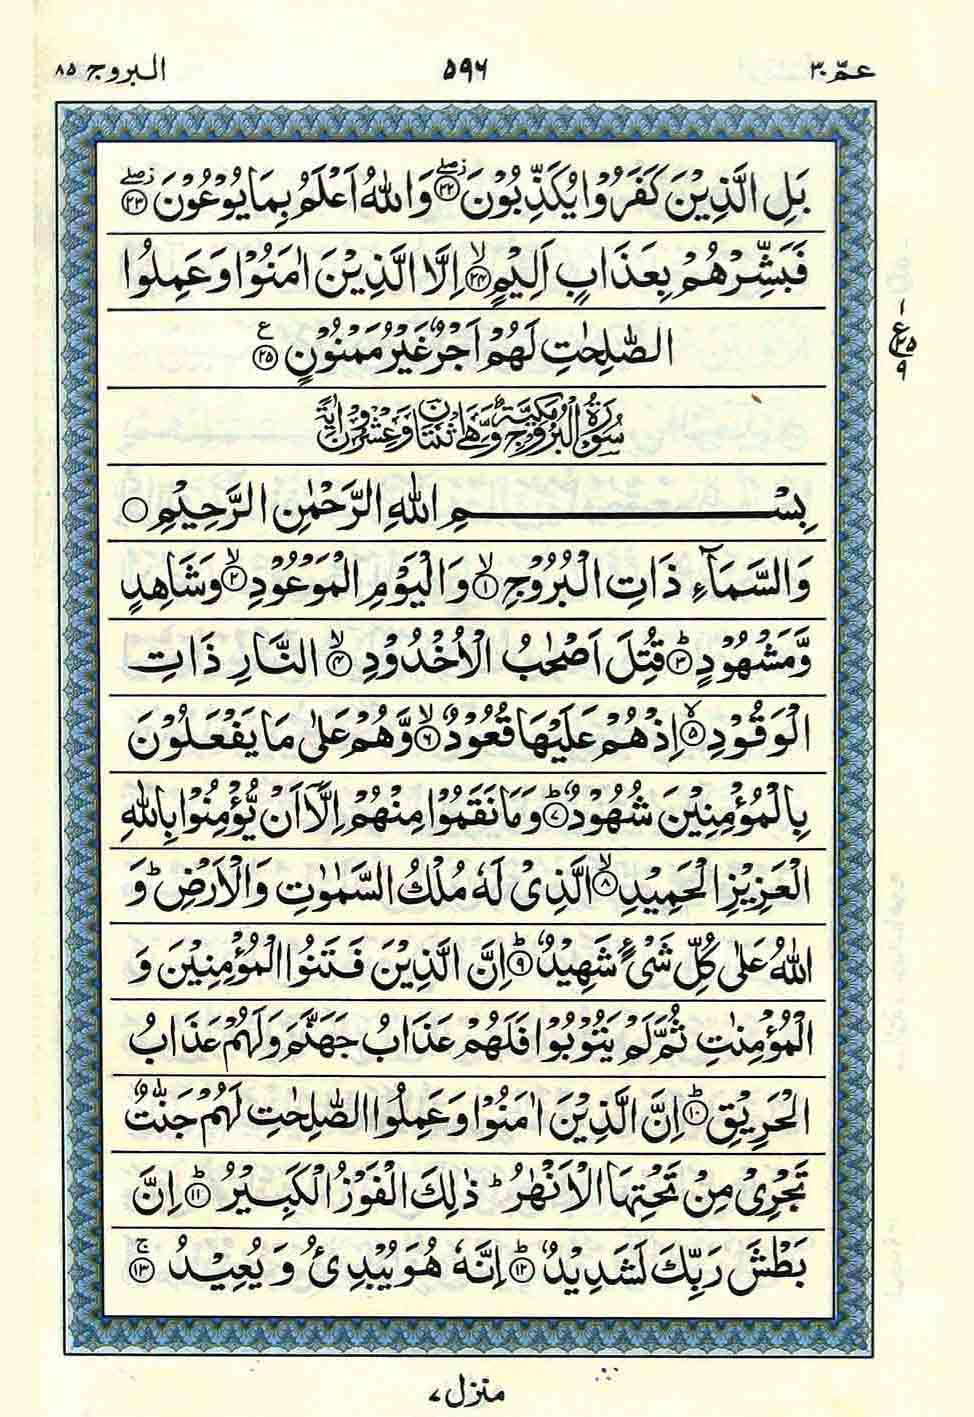 عمّ ٣٠
٥٩٦
البروج ٨٥
بَلِ الَّذِيْنَ كَفَرُوْا يُكَذِّبُوْنَ ﴿٢٢﴾ وَاللّٰهُ اَعْلَمُ بِمَا يُوْعُوْنَ ﴿٢٣﴾
فَبَشِّرْهُمْ بِعَذَابٍ اَلِيْمٍ ﴿٢٤﴾ اِلَّا الَّذِيْنَ اٰمَنُوْا وَعَمِلُوا
الصّٰلِحٰتِ لَهُمْ اَجْرٌ غَيْرُ مَمْنُوْنٍ ﴿٢٥﴾
١
ع
٢٥
٩
سُوْرَةُ الْبُرُوْجِ مَكِّيَّةٌ وَّهِيَ ثْنَتَانِ وَعِشْرُوْنَ اٰيَةً
بِسْمِ اللّٰهِ الرَّحْمٰنِ الرَّحِيْمِ
وَالسَّمَآءِ ذَاتِ الْبُرُوْجِ ﴿١﴾ وَالْيَوْمِ الْمَوْعُوْدِ ﴿٢﴾ وَشَاهِدٍ
وَّمَشْهُوْدٍ ﴿٣﴾ قُتِلَ اَصْحٰبُ الْاُخْدُوْدِ ﴿٤﴾ النَّارِ ذَاتِ
الْوَقُوْدِ ﴿٥﴾ اِذْ هُمْ عَلَيْهَا قُعُوْدٌ ﴿٦﴾ وَّهُمْ عَلٰى مَا يَفْعَلُوْنَ
بِالْمُؤْمِنِيْنَ شُهُوْدٌ ﴿٧﴾ وَمَا نَقَمُوْا مِنْهُمْ اِلَّآ اَنْ يُّؤْمِنُوْا بِاللّٰهِ
الْعَزِيْزِ الْحَمِيْدِ ﴿٨﴾ الَّذِيْ لَهٗ مُلْكُ السَّمٰوٰتِ وَالْاَرْضِ ؕ وَ
اللّٰهُ عَلٰى كُلِّ شَيْءٍ شَهِيْدٌ ﴿٩﴾ اِنَّ الَّذِيْنَ فَتَنُوا الْمُؤْمِنِيْنَ وَ
الْمُؤْمِنٰتِ ثُمَّ لَمْ يَتُوْبُوْا فَلَهُمْ عَذَابُ جَهَنَّمَ وَلَهُمْ عَذَابُ
الْحَرِيْقِ ﴿١٠﴾ اِنَّ الَّذِيْنَ اٰمَنُوْا وَعَمِلُوا الصّٰلِحٰتِ لَهُمْ جَنّٰتٌ
تَجْرِيْ مِنْ تَحْتِهَا الْاَنْهٰرُ ؕ ذٰلِكَ الْفَوْزُ الْكَبِيْرُ ﴿١١﴾ اِنَّ
بَطْشَ رَبِّكَ لَشَدِيْدٌ ﴿١٢﴾ اِنَّهٗ هُوَ يُبْدِئُ وَيُعِيْدُ ﴿١٣﴾
منزل ٧